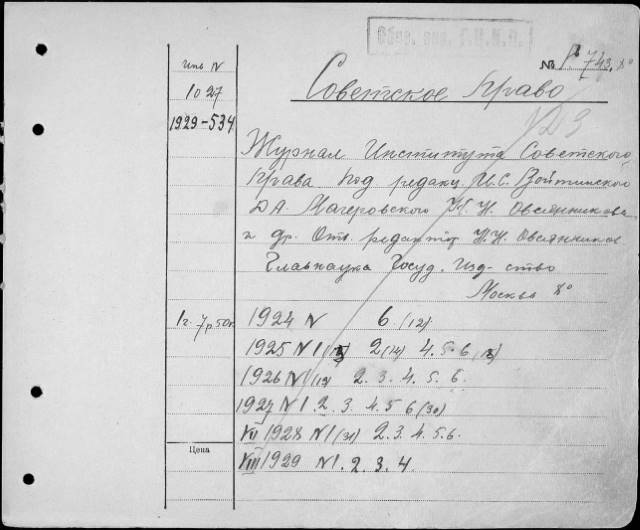 Обр. инв. Г.Ц.К.П.
№ Р 743. 8°
Советское право
Инв N
1027
1929-534
Журнал Института Советского
Права под редакц. И.С. Войтинского
Д.А. Магеровского Н. Н. Овсянникова
и др. Отв. редактор Н.Н. Овсянников
Главнаука Госуд. Изд-ство
Москва 8°
1г. 7р.50к.
1924 N 6. (12)
1925 N 1 2 (14) 4. 5. 6
1926 N 1 (19) 2. 3. 4. 5. 6.
1927 N 1. 2. 3. 4. 5 6 (30)
VII 1928 N 1 (31) 2. 3. 4. 5. 6.
Цена
VIII 1929 N 1. 2. 3. 4.